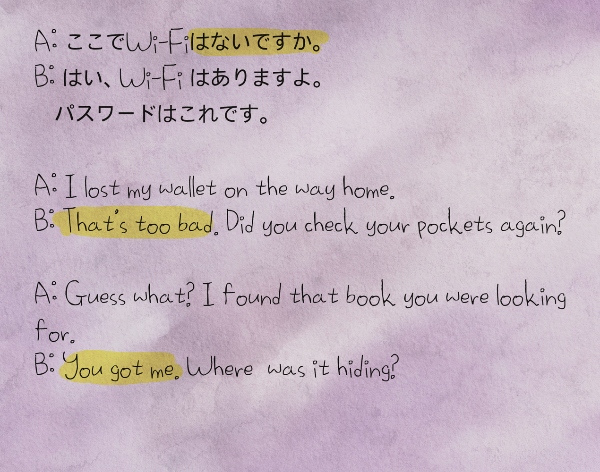 A: ここでWi-Fiはないですか。
B: はい、Wi-Fi はありますよ。
パスワードはこれです。
A: I lost my wallet on the way home.
B: That's too bad. Did you check your pockets again?
A: Guess what? I found that book you were looking
for.
B: You got me. Where was it hiding?